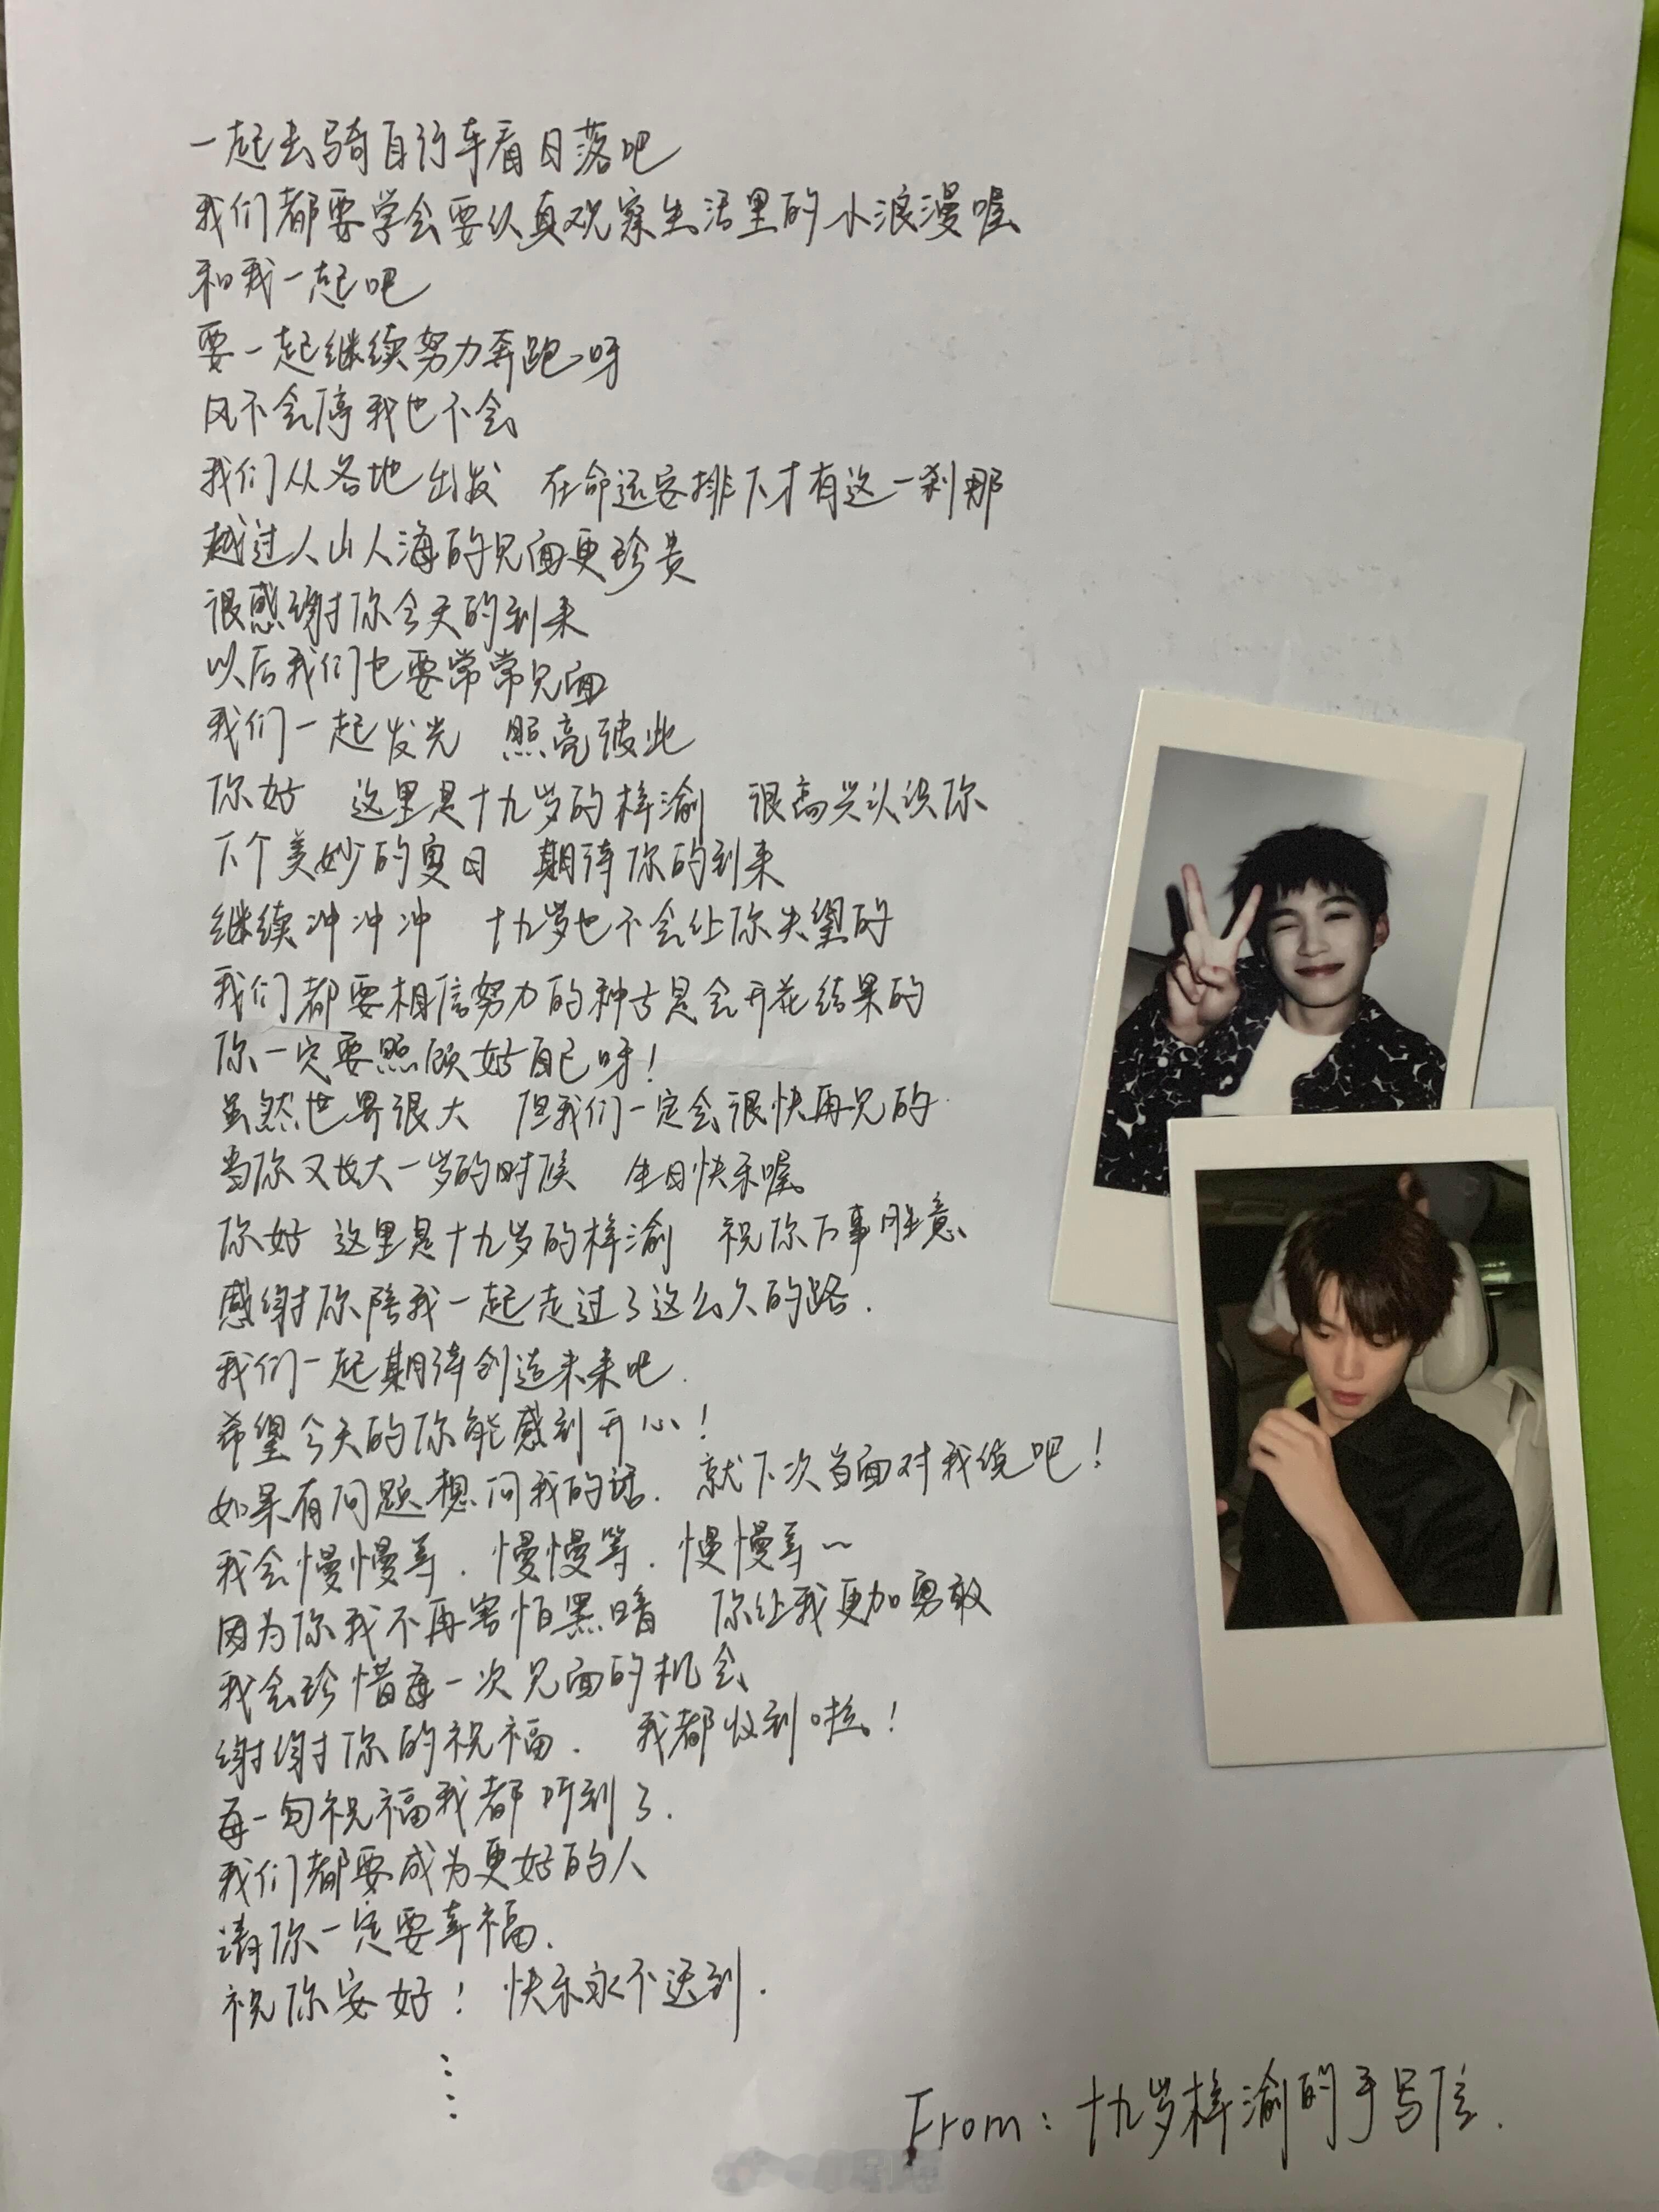 一起去骑自行车看日落吧
我们都要学会要认真观察生活里的小浪漫喔
和我一起吧
要一起继续努力奔跑呀
风不会停我也不会
我们从各地出发 在命运安排下才有这一刹那
越过人山人海的见面更珍贵
很感谢你今天的到来
以后我们也要常常见面
我们一起发光 照亮彼此
你好 这里是十九岁的梓渝 很高兴认识你
下个美妙的夏日 期待你的到来
继续冲冲冲 十九岁也不会让你失望的
我们都要相信努力的种子是会开花结果的
你一定要照顾好自己呀!
虽然世界很大 但我们一定会很快再见的
当你又长大一岁的时候 生日快乐喔
你好 这里是十九岁的梓渝 祝你万事胜意
感谢你陪我一起走过了这么久的路.
我们一起期待创造未来吧.
希望今天的你能感到开心!
如果有问题想问我的话. 就下次当面对我说吧!
我会慢慢等. 慢慢等. 慢慢等~
因为你我不再害怕黑暗 你让我更加勇敢
我会珍惜每一次见面的机会
谢谢你的祝福. 我都收到啦!
每一句祝福我都听到了.
我们都要成为更好的人
请你一定要幸福.
祝你安好! 快乐永不迟到.
......
From: 十九岁梓渝的手写信.